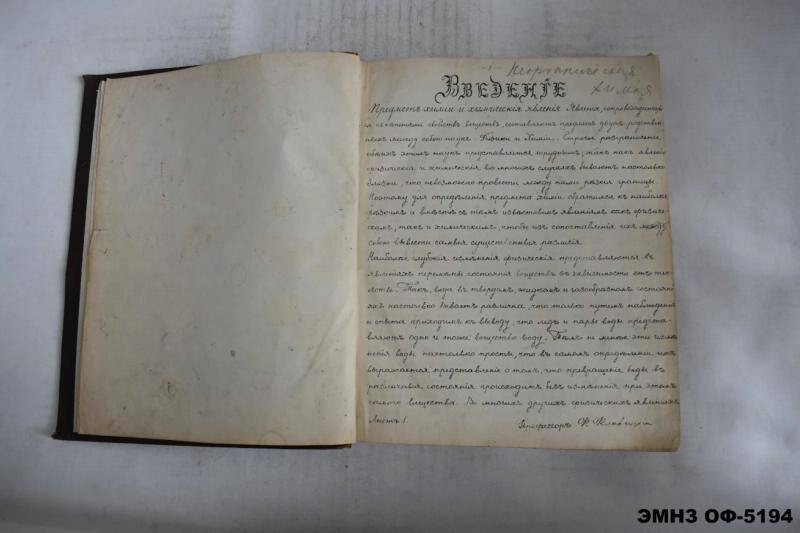 -1- Неорганическая
химия
Введенiе
Предметъ химiи и химическiя явленiя. Явленiя, сопровождающiя-
ся измѣненiями свойствъ веществъ, составляютъ предметъ двухъ родствен-
ныхъ между собою наукъ Физики и Химiи. Строгое разграниченiе
обѣихъ этихъ наукъ представляется труднымъ, такъ какъ явленiя
физическiя и химическiя во многихъ случаяхъ бываютъ настолько
близки, что невозможно провести между ними рѣзкой границы.
Поэтому для опредѣленiя предмета химiи обратимся къ наиболѣе
рѣзкимъ и вмѣстѣ съ тѣмъ извѣстнымъ явленiямъ какъ физичес-
кимъ, такъ и химическимъ, чтобы изъ сопоставленiя ихъ между
собою вывести самыя существенныя различiя.
Наиболѣе глубокiя измѣненiя физическiя представляются въ
явленiяхъ перемѣны состоянiя веществъ въ зависимости отъ теп-
лоты. Такъ, вода въ твердомъ, жидкомъ и газообразномъ состоянi-
яхъ настолько бываетъ различна, что только путемъ наблюденiя
и опыта приходимъ къ выводу, что ледъ и пары воды предста-
вляютъ одно и тоже вещество воду. Тѣмъ не менѣе эти измѣ-
ненiя воды настолько просты, что въ самомъ опредѣленiи ихъ
выражается представленiе о томъ, что превращенiе воды въ
различныя состоянiя происходитъ безъ измѣненiя при этомъ
самого вещества. Во многихъ другихъ физическихъ явленiяхъ
Листъ 1. Профессоръ
ЭМНЗ ОФ-5194